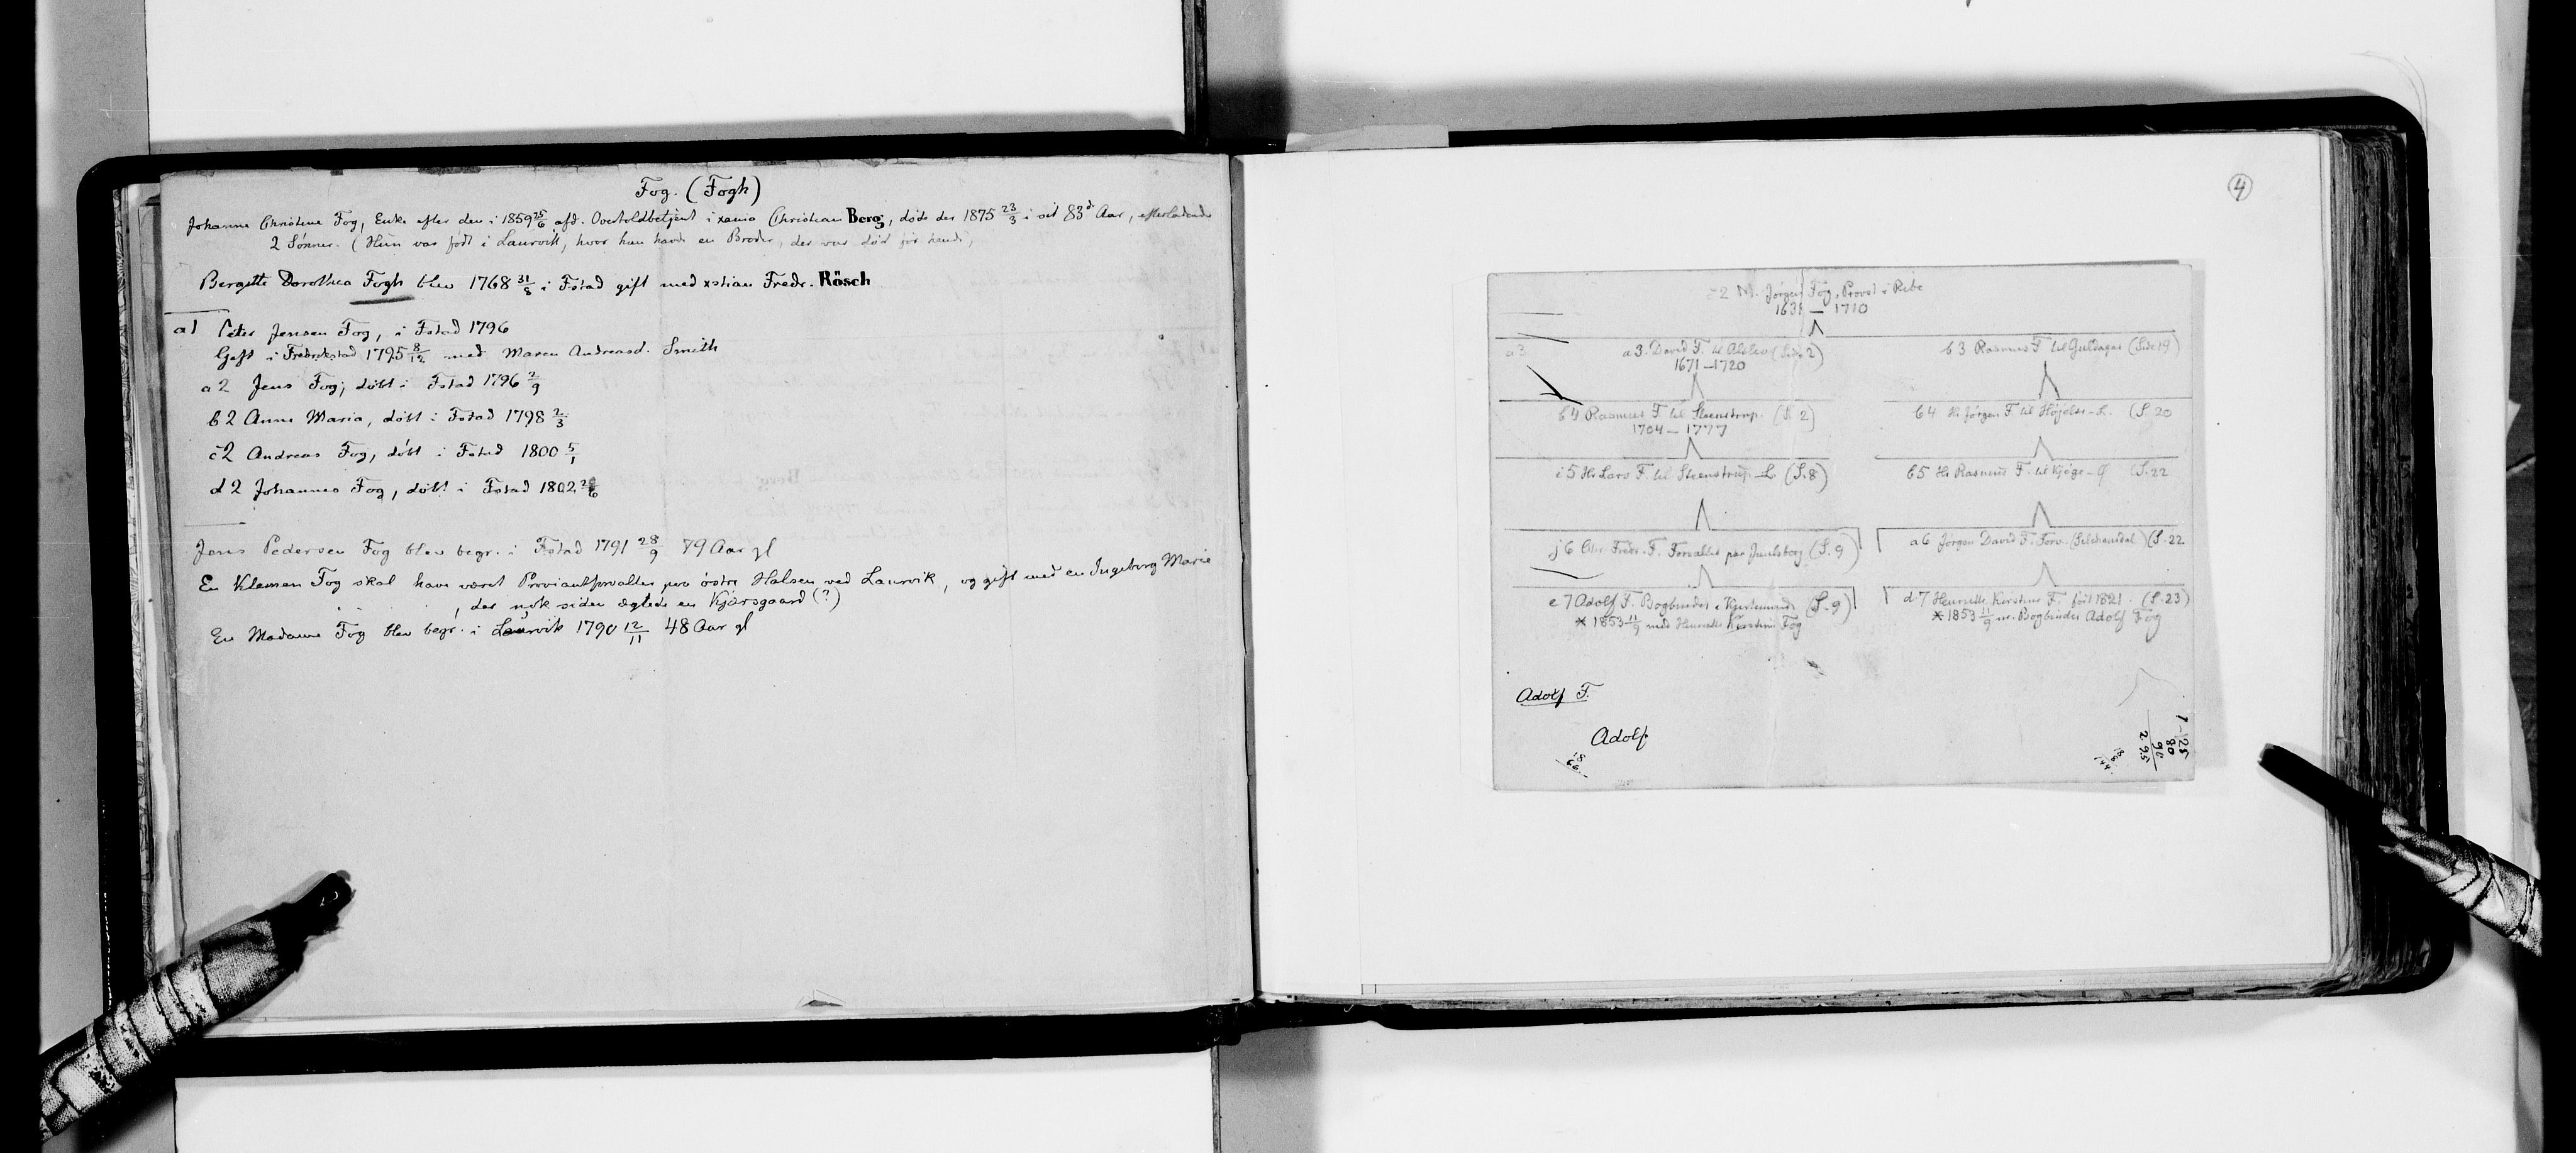 Fog. (Fogh)
Johanne Christine Fog, Enke efter den i 1859 25/6 afd. Overtoldbetjent i Xania Christian Berg, døde der 1875 23/3 i sit 83de Aar, efterladende
2 Sønner. (Hun var født i Laurvik, hvor hun havde en Broder, der var død før hende,
Bergitte Dorothea Fogh blev 1768 31/8 i Fstad gift med xstian Fredr. Rösch
a1 Peter Jensen Fog, i Fstad 1796
Gift i Fredrikstad 1795 8/12 med Maren Andreasd. Smith
a2 Jens Fog, døbt i Fstad 1796 2/9
b2 Anne Maria, døbt i Fstad 1798 2/3
c2 Andreas Fog, døbt i Fstad 1800 5/1
d2 Johannes Fog, døbt i Fstad 1802
Jens Pedersen Fog blev begr. i Fstad 1791 28/9 79 Aar gl
En Klemen Fog skal have været Proviantforvalter paa østre Halsen ved Laurvik, og gift med en Ingeborg Marie
, der nok siden ægtede en Kjærsgaard (?)
En Madame Fog blev begr. i Laurvik 1790 12/11 48 Aar gl
4
c2 M. Jørgen Fog, Provst i Ribe
1631 — 1710
a3 a3. David F. til Alslev (Side 2) b3 Rasmus F til Guldager (Side 19)
1671—1720
b4 Rasmus F til Steenstrup. (S. 2) b4 Hr Jørgen F til Højelse-L. (S. 20
1704 — 1777
i5 Hr Lars F. til Steenstrup-L (S. 8) b5 Hr Rasmus F. til Kjøge-Ø (S. 22
j6 Chr. Fredr. F. Forvalter paa Juulsborg (S. 9) a6 Jørgen David F. Forv. (S. 22
e7 Adolf F. Bogbinder i Kjerteminde (S. 9) d7 Henriette Kirstine F. født 1821. (S. 23)
* 1853 11/9 med Henriette Kirstine Fog * 1853 11/9 m. Bogbinder Adolf Fog
Adolf F.
Adolf
18
66
1-25
80
90
2 95
18